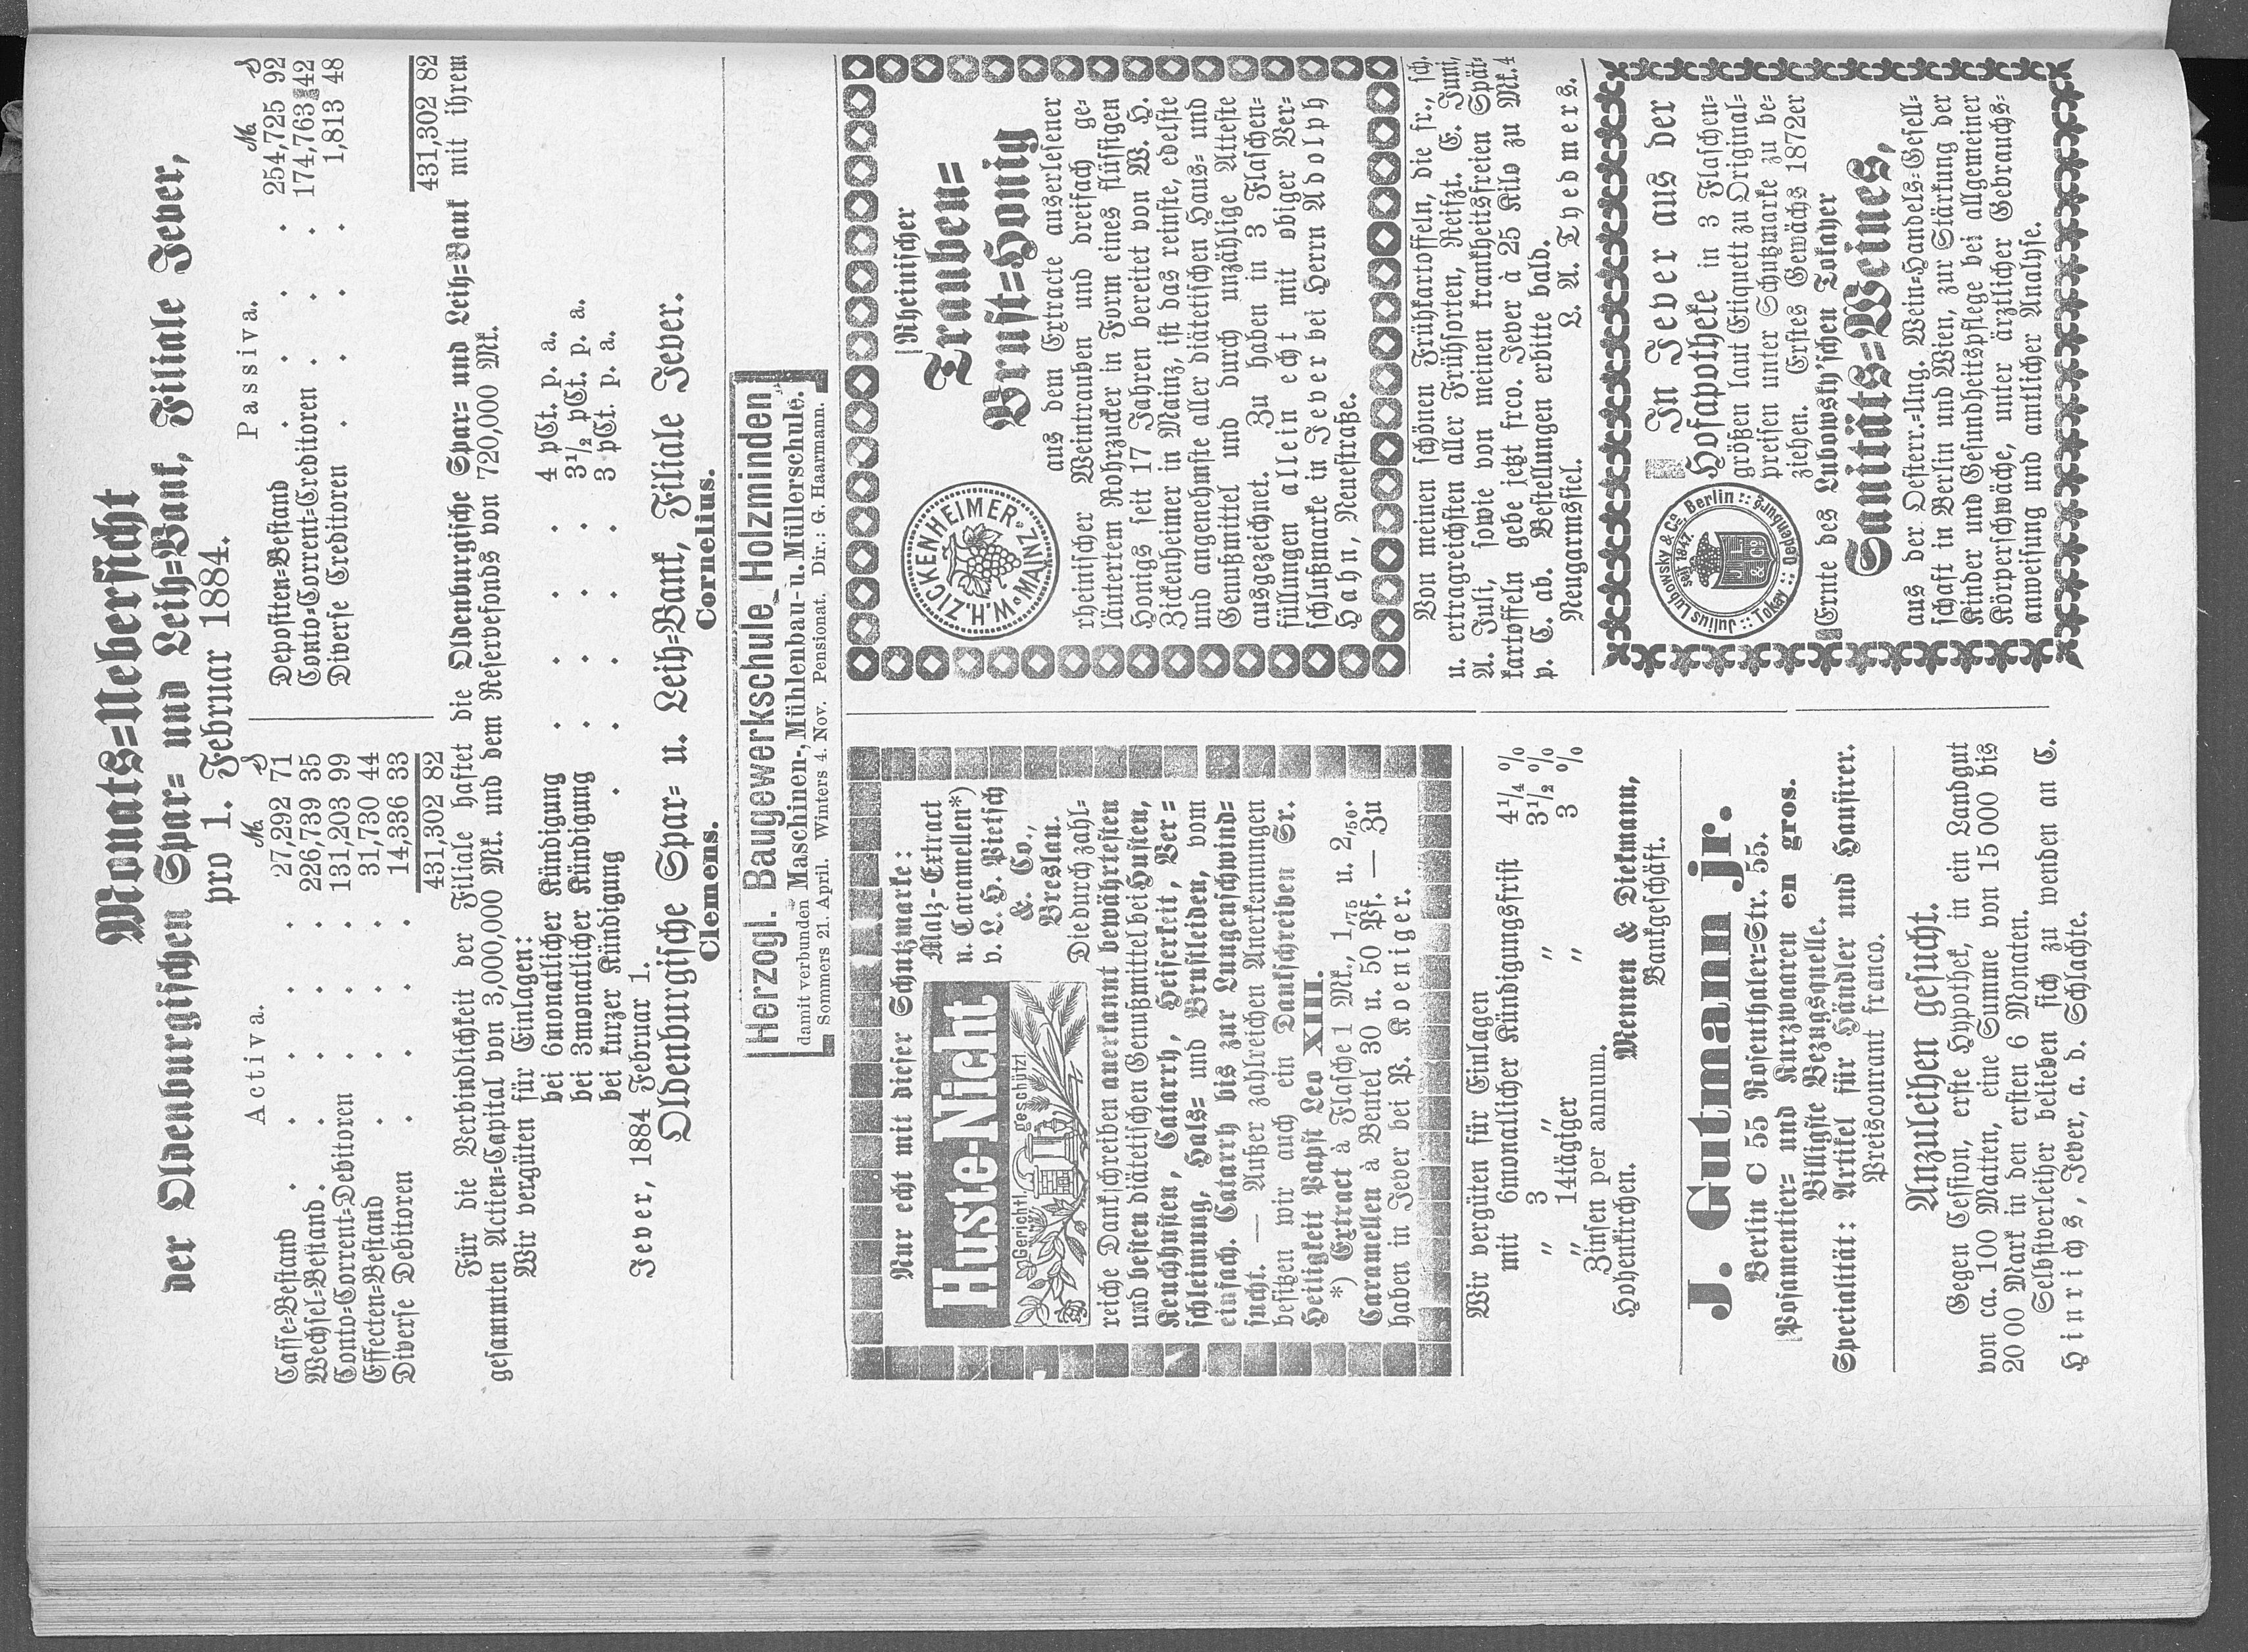 Monats=Uebersicht
der Oldenburgischen Spar= und Leih=Bank, Filiale Jever,
pro 1. Februar 1884.
Activa.
M. S
Casse=Bestand . . . . 27,292 71
Wechsel=Bestand . . . . 226,739 35
Conto=Corrent=Debitoren . . . 131,203 99
Effecten=Bestand . . . . 31,730 44
Diverse Debitoren . . . . 14,336 33
431,302 82
Passiva.
M. S
Depositen=Bestand . . . . 254,725 92
Conto=Corrent=Creditoren . . . 174,763 42
Diverse Creditoren . . . . 1,813 48
431,302 82
Für die Verbindlichkeit der Filiale haftet die Oldenburgische Spar= und Leih=Bank mit ihrem
gesammten Actien=Capital von 3,000,000 Mk. und dem Reservefonds von 720,000 Mk.
Wir vergüten für Einlagen:
bei 6monatlicher Kündigung . . . . 4 pCt. p. a.
bei 3monatlicher Kündigung . . . . 3½ pCt. p. a.
bei kurzer Kündigung . . . . . 3 pCt. p. a.
Jever, 1884 Februar 1.
Oldenburgische Spar= u. Leih=Bank, Filiale Jever.
Clemens. Cornelius.
Herzogl. Baugewerkschule Holzminden
damit verbunden Maschinen-, Mühlenbau- u. Müllerschule.
Sommers 21. April. Winters 4. Nov. Pensionat. Dir.: G. Haarmann.
Nur echt mit dieser Schutzmarke:
Huste-Nicht
Gerichtl. geschützt.
Malz-Extract
u. Caramellen*)
v. L. H. Pietsch
& Co.,
Breslau.
Die durch zahl=
reiche Dankschreiben anerkannt bewährtesten
und besten diätetischen Genußmittel bei Husten,
Keuchhusten, Catarrh, Heiserkeit, Ver=
schleimung, Hals= und Brustleiden, vom
einfach. Catarrh bis zur Lungenschwind=
sucht. — Außer zahlreichen Anerkennungen
besitzen wir auch ein Dankschreiben Sr.
Heiligkeit Papst Leo XIII.
*) Extract à Flasche 1 Mk., 1,75 u. 2,50.
Caramellen à Beutel 30 u. 50 Pf. — Zu
haben in Jever bei P. Koeniger.
Wir vergüten für Einlagen
mit 6monatlicher Kündigungsfrist 4¼ %
„ 3 „ „ 3½ %
„ 14tägiger „ 3 %
Zinsen per annum.
Hohenkirchen. Memmen & Diekmann,
Bankgeschäft.
J. Gutmann jr.
Berlin C 55 Rosenthaler=Str. 55.
Posamentier= und Kurzwaaren en gros.
Billigste Bezugsquelle.
Specialität: Artikel für Händler und Hausirer.
Preiscourant franco.
Anzuleihen gesucht.
Gegen Cession, erste Hypothek, in ein Landgut
von ca. 100 Matten, eine Summe von 15 000 bis
20 00 Mark in den ersten 6 Monaten.
Selbstverleiher belieben sich zu wenden an C.
Hinrichs, Jever, a. d. Schlachte.
W. H. ZICKENHEIMER MAINZ
Rheinischer
Trauben=
Brust=Honig
aus dem Extracte auserlesener
rheinischer Weintrauben und dreifach ge=
läutertem Rohrzucker in Form eines flüssigen
Honigs seit 17 Jahren bereitet von W. H.
Zickenheimer in Mainz, ist das reinste, edelste
und angenehmste aller diätetischen Haus= und
Genußmittel und durch unzählige Atteste
ausgezeichnet. Zu haben in 3 Flaschen=
füllungen allein echt mit obiger Ver=
schlußmarke in Jever bei Herrn Adolph
Hahn, Neuestraße.
Von meinen schönen Frühkartoffeln, die fr., sch.
u. ertragreichsten aller Frühsorten, Reifzt. E. Juni,
A. Juli, sowie von meinen krankheitsfreien Spät=
kartoffeln gebe jetzt frco. Jever à 25 Kilo zu Mk. 4
p. C. ab. Bestellungen erbitte bald.
Neugarmssiel. L. A. Thedmers.
Julius Lubowsky & Co. Berlin :: Tokay :: Oedenburg ::
1847.
J L & Co
In Jever aus der
Hofapotheke in 3 Flaschen=
größen laut Etiquett zu Original=
preisen unter Schutzmarke zu be=
ziehen. Erstes Gewächs 1872er
Ernte des Lubowsky'schen Tokayer
Sanitäts=Weines,
aus der Oesterr.=Ung. Wein=Handels=Gesell=
schaft in Berlin und Wien, zur Stärkung der
Kinder und Gesundheitspflege bei allgemeiner
Körperschwäche, unter ärztlicher Gebrauchs=
anweisung und amtlicher Analyse.